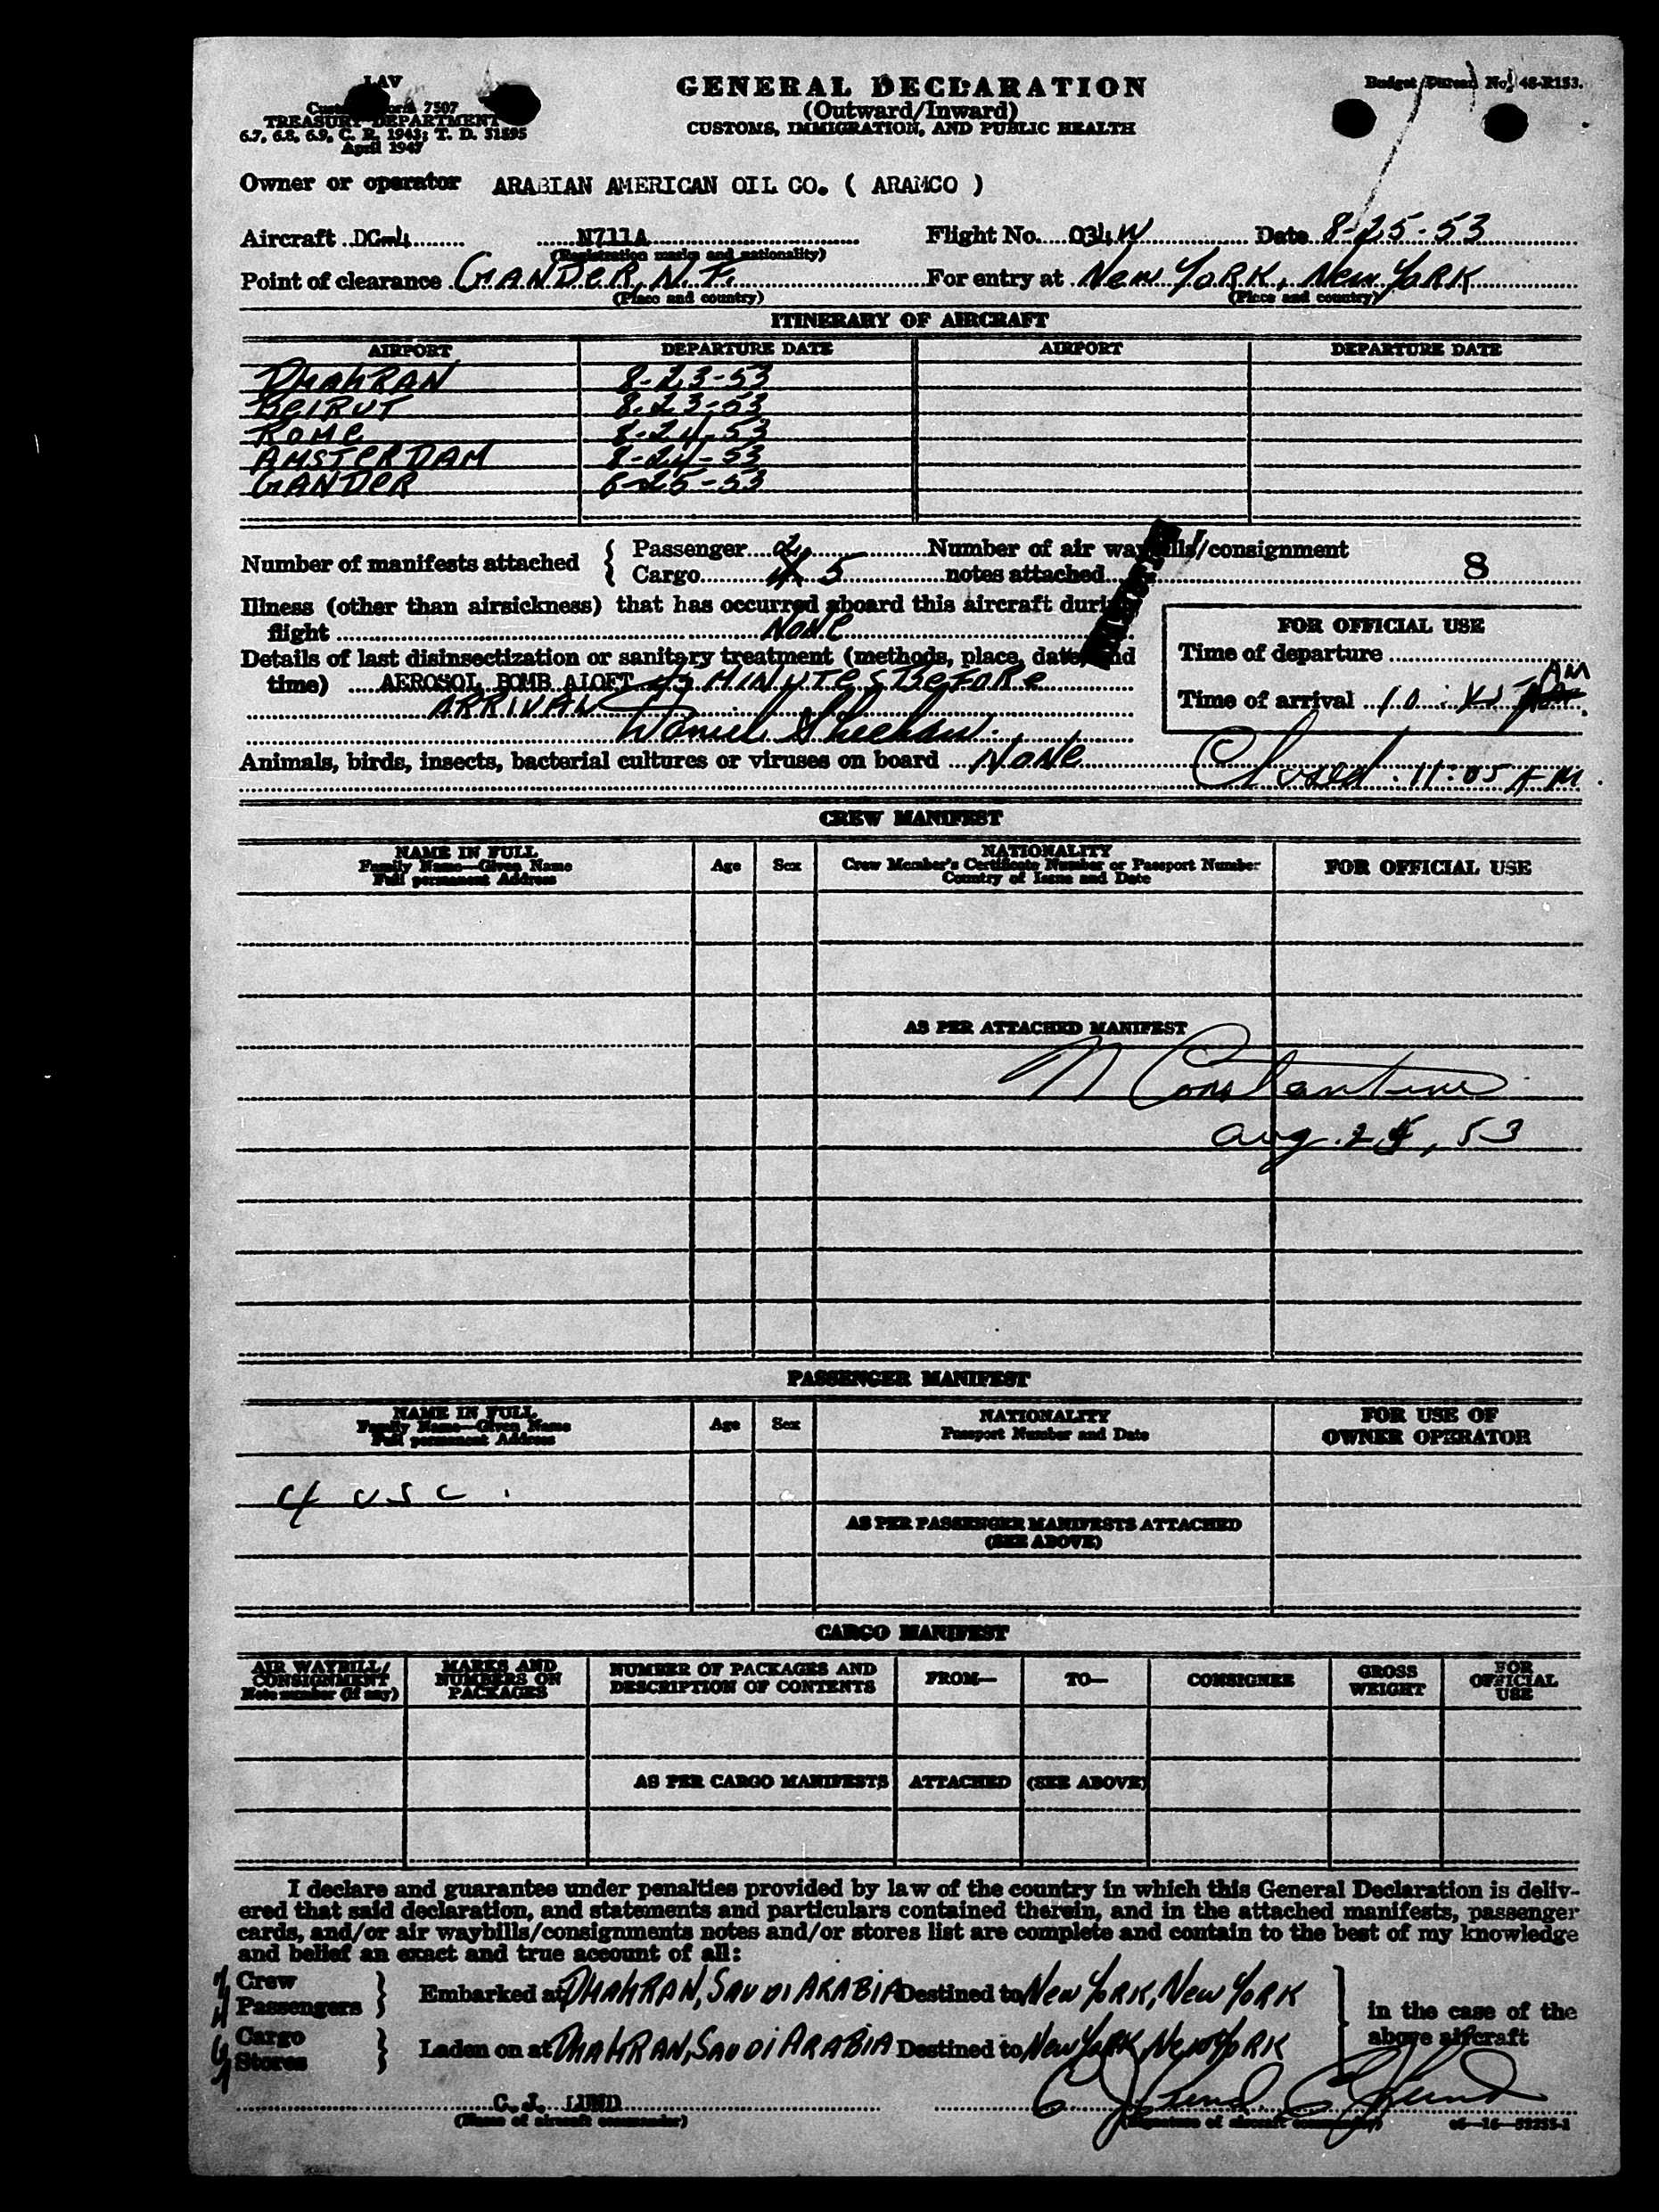 LAV
Customs Form 7507
TREASURY DEPARTMENT
6.7, 6.8, 6.9, C. R. 1943; T. D. 51895
April 1947
GENERAL DECLARATION
(Outward/Inward)
CUSTOMS, IMMIGRATION, AND PUBLIC HEALTH
Budget Bureau No. 48-R153.
Owner or operator ARABIAN AMERICAN OIL CO. ( ARAMCO )
Aircraft DC-4 N711A Flight No. 034W Date 8-25-53
(Registration marks and nationality)
Point of clearance GANDER, N.F. For entry at New York, New York
(Place and country) (Place and country)
ITINERARY OF AIRCRAFT
AIRPORT DEPARTURE DATE AIRPORT DEPARTURE DATE
DHAHRAN 8-23-53
BEIRUT 8-23-53
ROME 8-24-53
AMSTERDAM 8-24-53
GANDER 8-25-53
Number of manifests attached { Passenger 2 Number of air waybills/consignment
Cargo 5 notes attached 8
Illness (other than airsickness) that has occurred aboard this aircraft during
flight NONE
FOR OFFICIAL USE
Details of last disinsectization or sanitary treatment (methods, place, date, and
Time of departure
time) AEROSOL BOMB ALOFT 45 MINUTES BEFORE
ARRIVAL
Time of arrival 10: AM
Daniel Sheehan.
Animals, birds, insects, bacterial cultures or viruses on board NONE
Closed. 11:05 AM.
CREW MANIFEST
NAME IN FULL
Family Name—Given Name
Full permanent Address
Age Sex
NATIONALITY
Crew Member's Certificate Number or Passport Number
Country of Issue and Date
FOR OFFICIAL USE
AS PER ATTACHED MANIFEST
N Constantine
Aug. 25, 53
PASSENGER MANIFEST
NAME IN FULL
Family Name—Given Name
Full permanent Address
Age Sex
NATIONALITY
Passport Number and Date
FOR USE OF
OWNER OPERATOR
4 USC.
AS PER PASSENGER MANIFESTS ATTACHED
(SEE ABOVE)
CARGO MANIFEST
AIR WAYBILL/
CONSIGNMENT
Note number (if any)
MARKS AND
NUMBERS ON
PACKAGES
NUMBER OF PACKAGES AND
DESCRIPTION OF CONTENTS
FROM— TO— CONSIGNEE
GROSS
WEIGHT
FOR
OFFICIAL
USE
AS PER CARGO MANIFESTS ATTACHED (SEE ABOVE)
I declare and guarantee under penalties provided by law of the country in which this General Declaration is deliv-
ered that said declaration, and statements and particulars contained therein, and in the attached manifests, passenger
cards, and/or air waybills/consignments notes and/or stores list are complete and contain to the best of my knowledge
and belief an exact and true account of all:
Crew
Passengers } Embarked at DHAHRAN, SAUDI ARABIA Destined to New York, New York
Cargo
Stores } Laden on at DHAHRAN, SAUDI ARABIA Destined to New York New York
in the case of the
above aircraft
C. J. LUND C J Lund C J Lund
(Name of aircraft commander) (Signature of aircraft commander) 16—52255-1